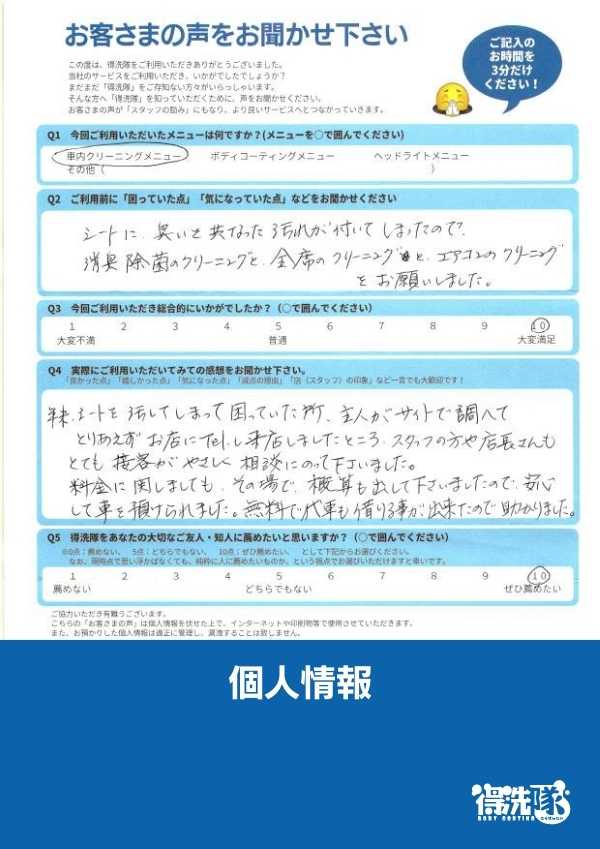 お客さまの声をお聞かせ下さい
ご記入の
お時間を
3分だけ
ください！
この度は、得洗隊をご利用いただきありがとうございました。
当社のサービスをご利用いただき、いかがでしたでしょうか？
まだまだ「得洗隊」をご存知ない方々がいらっしゃいます。
そんな方へ「得洗隊」を知っていただくために、声をお聞かせください。
お客さまの声が「スタッフの励み」にもなり、より良いサービスへとつながっていきます。
Q1 今回ご利用いただいたメニューは何ですか？(メニューを○で囲んでください)
車内クリーニングメニュー ボディコーティングメニュー ヘッドライトメニュー
その他（ ）
Q2 ご利用前に「困っていた点」「気になっていた点」などをお聞かせください
シートに、臭いと共なった汚れが付いてしまったので、
消臭除菌のクリーニングと、全席のクリーニングと、エアコンのクリーニング
をお願いしました。
Q3 今回ご利用いただき総合的にいかがでしたか？（○で囲んでください）
1 2 3 4 5 6 7 8 9 10
大変不満 普通 大変満足
Q4 実際にご利用いただいてみての感想をお聞かせ下さい。
「良かった点」「嬉しかった点」「気になった点」「減点の理由」「店（スタッフ）の印象」など一言でも大歓迎です！
シートを汚してしまって困っていた所、主人がサイトで調べて
とりあえずお店にTel.し来店しましたところ、スタッフの方や店長さんも
とても接客がやさしく相談にのって下さいました。
料金に関しましても、その場で、概算も出して下さいましたので、安心
して車を預けられました。無料で代車も借りる事が出来たので助かりました。
Q5 得洗隊をあなたの大切なご友人・知人に薦めたいと思いますか？（○で囲んでください）
※0点：薦めない、 5点：どちらでもない、 10点：ぜひ薦めたい、 として下記からお選びください。
なお、現時点で思い浮かばなくても、純粋に人に薦めたいものか、という視点でお選びいただけますと幸いです。
1 2 3 4 5 6 7 8 9 10
薦めない どちらでもない ぜひ薦めたい
ご協力いただき有難うございます。
こちらの「お客さまの声」は個人情報を伏せた上で、インターネットや印刷物等で使用させていただきます。
また、お預かりした個人情報は適正に管理し、漏洩することは致しません。
個人情報
得洗隊
BODY COATING